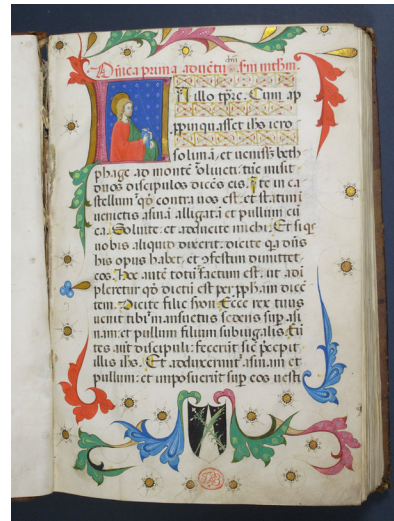 Dñica prima adventũ xp̃i. Sm̃ mthm̃.
In illo tp̃re. Cum ap
ppinquasset ihs iero
solimã. et venissẽt beth
phage ad montẽ oliveti: tũc misit
duos discipulos dicẽs eis. Ite in ca
stellum qđ contra vos est. et statim
invenietis asinã alligatã et pullum cũ
ea. Solvite et adducite michi. Et siqs
vobis aliquid dixerit. dicite qa dñs
his opus habet. et ꝯfestim dimittet
eos. Hoc autẽ totũ factum est. ut adi
pleretur qđ dictũ est per ꝓph̃am dicẽ
tem. Dicite filie syon. Ecce rex tuus
venit tibi mansuetus sedens suꝑ asi
nam: et pullum filium subiugalis. Eũ
tes aũt discipuli: fecerũt sic p̃cepit
illis ihs. Et adduxerunt asinam et
pullum: et imposuerũt suꝑ eos vesti